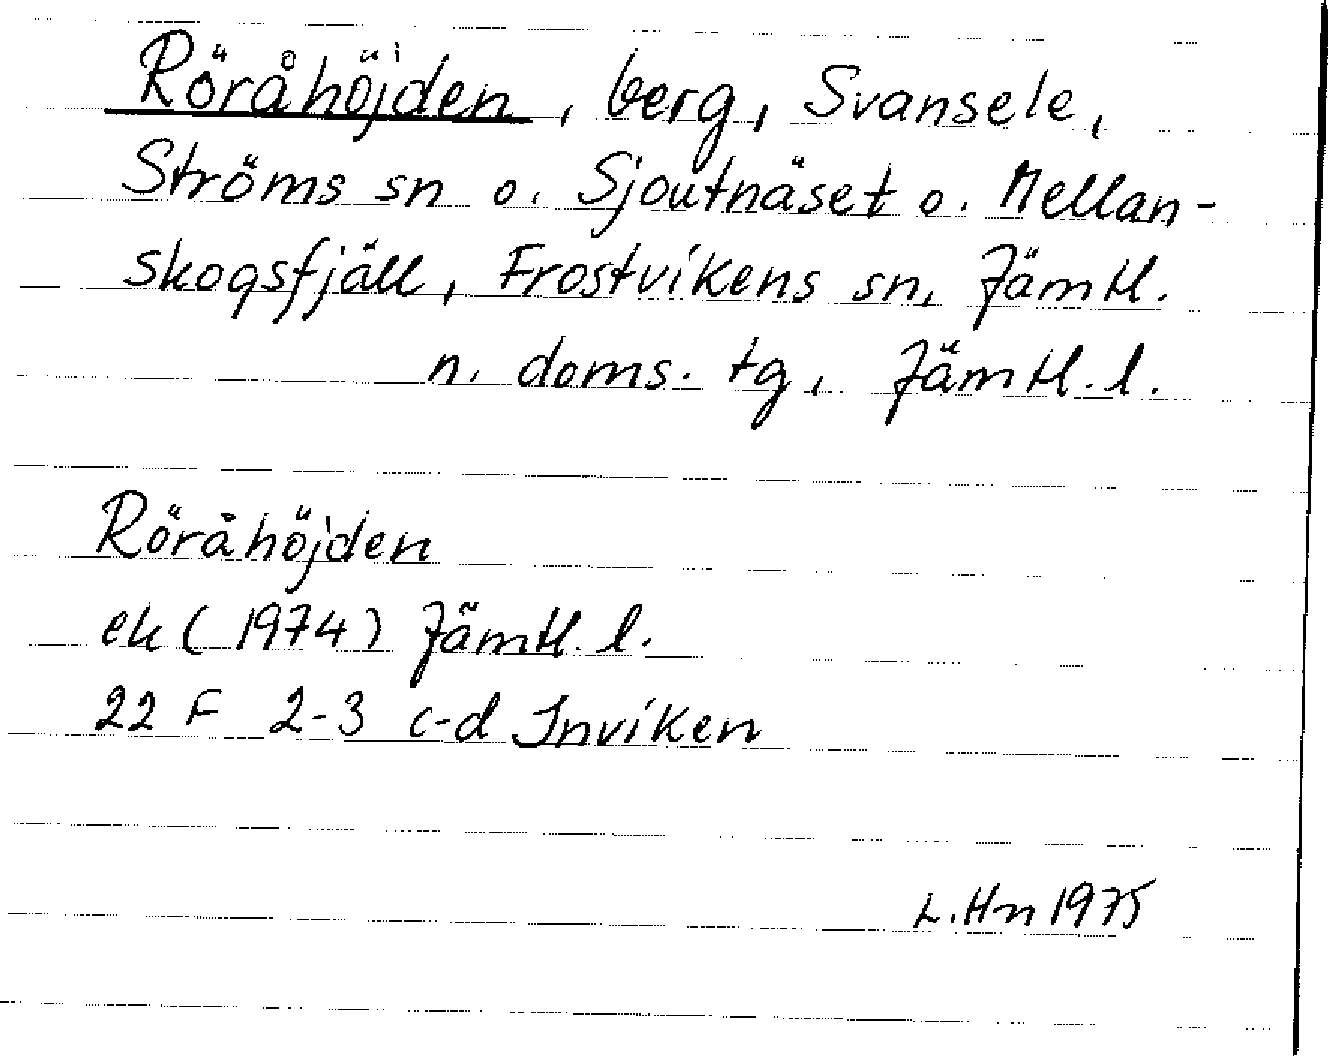 Röråhöjden, berg, Svansele,
Ströms sn o. Sjoutnäset o. Mellan-
skogsfjäll, Frostvikens sn, Jämtl.
n. doms. tg, Jämtl. l.
Röråhöjden
ek (1974) Jämtl. l.
22 F 2-3 c-d Inviken
L. Hn 1975